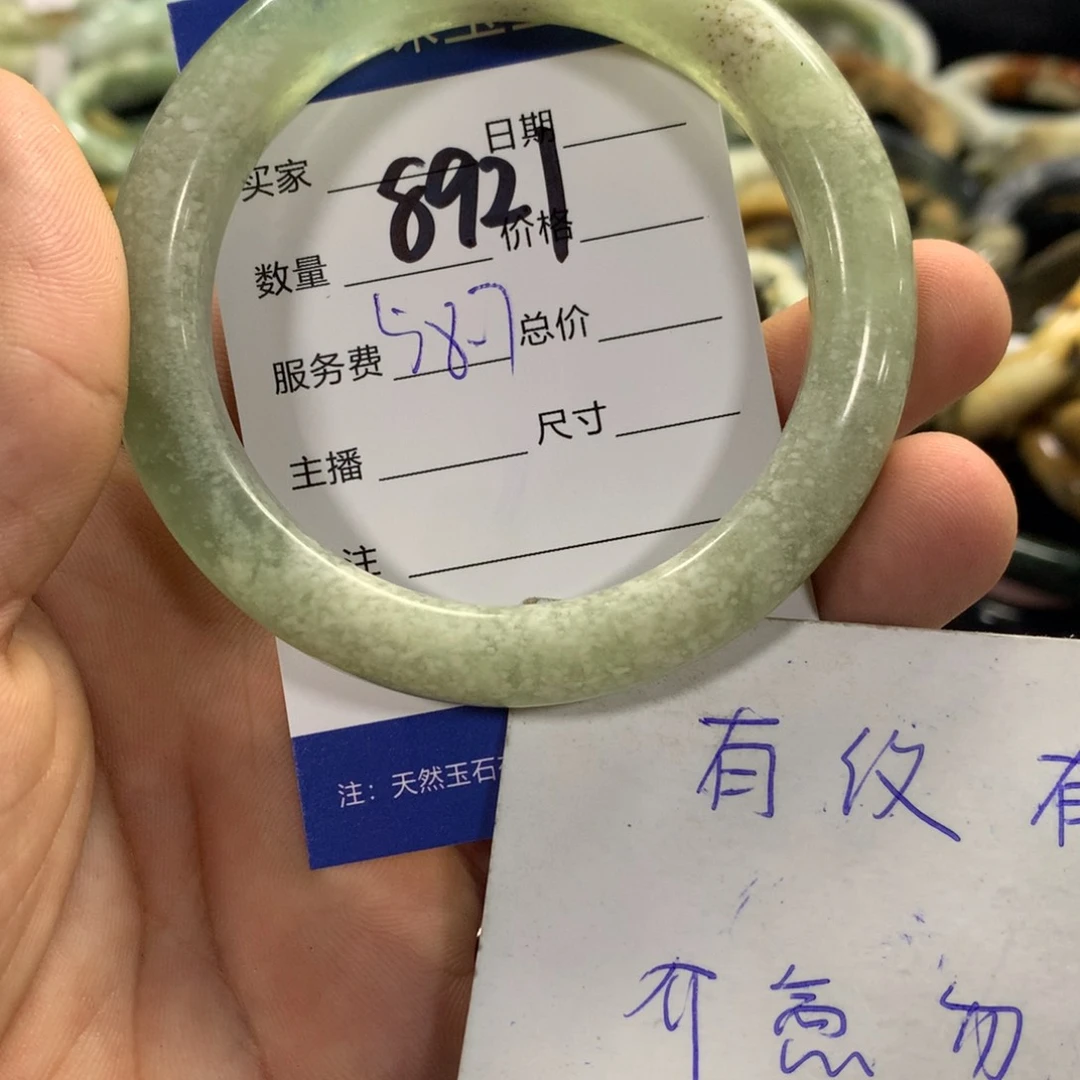 日期
买家
8921
价格
数量
58.7
总价
服务费
尺寸
主播
注
注：天然玉石
有纹有
介意勿